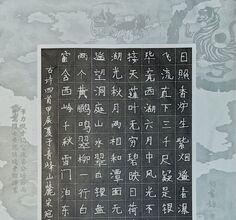 日照香炉生紫烟遥看瀑
飞流直下三千尺疑是银
毕竟西湖六月中风光不
接天莲叶无穷碧映日荷
湖光秋月两相和潭面无
遥望洞庭山水翠白银盘
两个黄鹂鸣翠柳一行白
窗含西岭千秋雪门泊东
古诗四首甲辰夏于青山麓宋冠